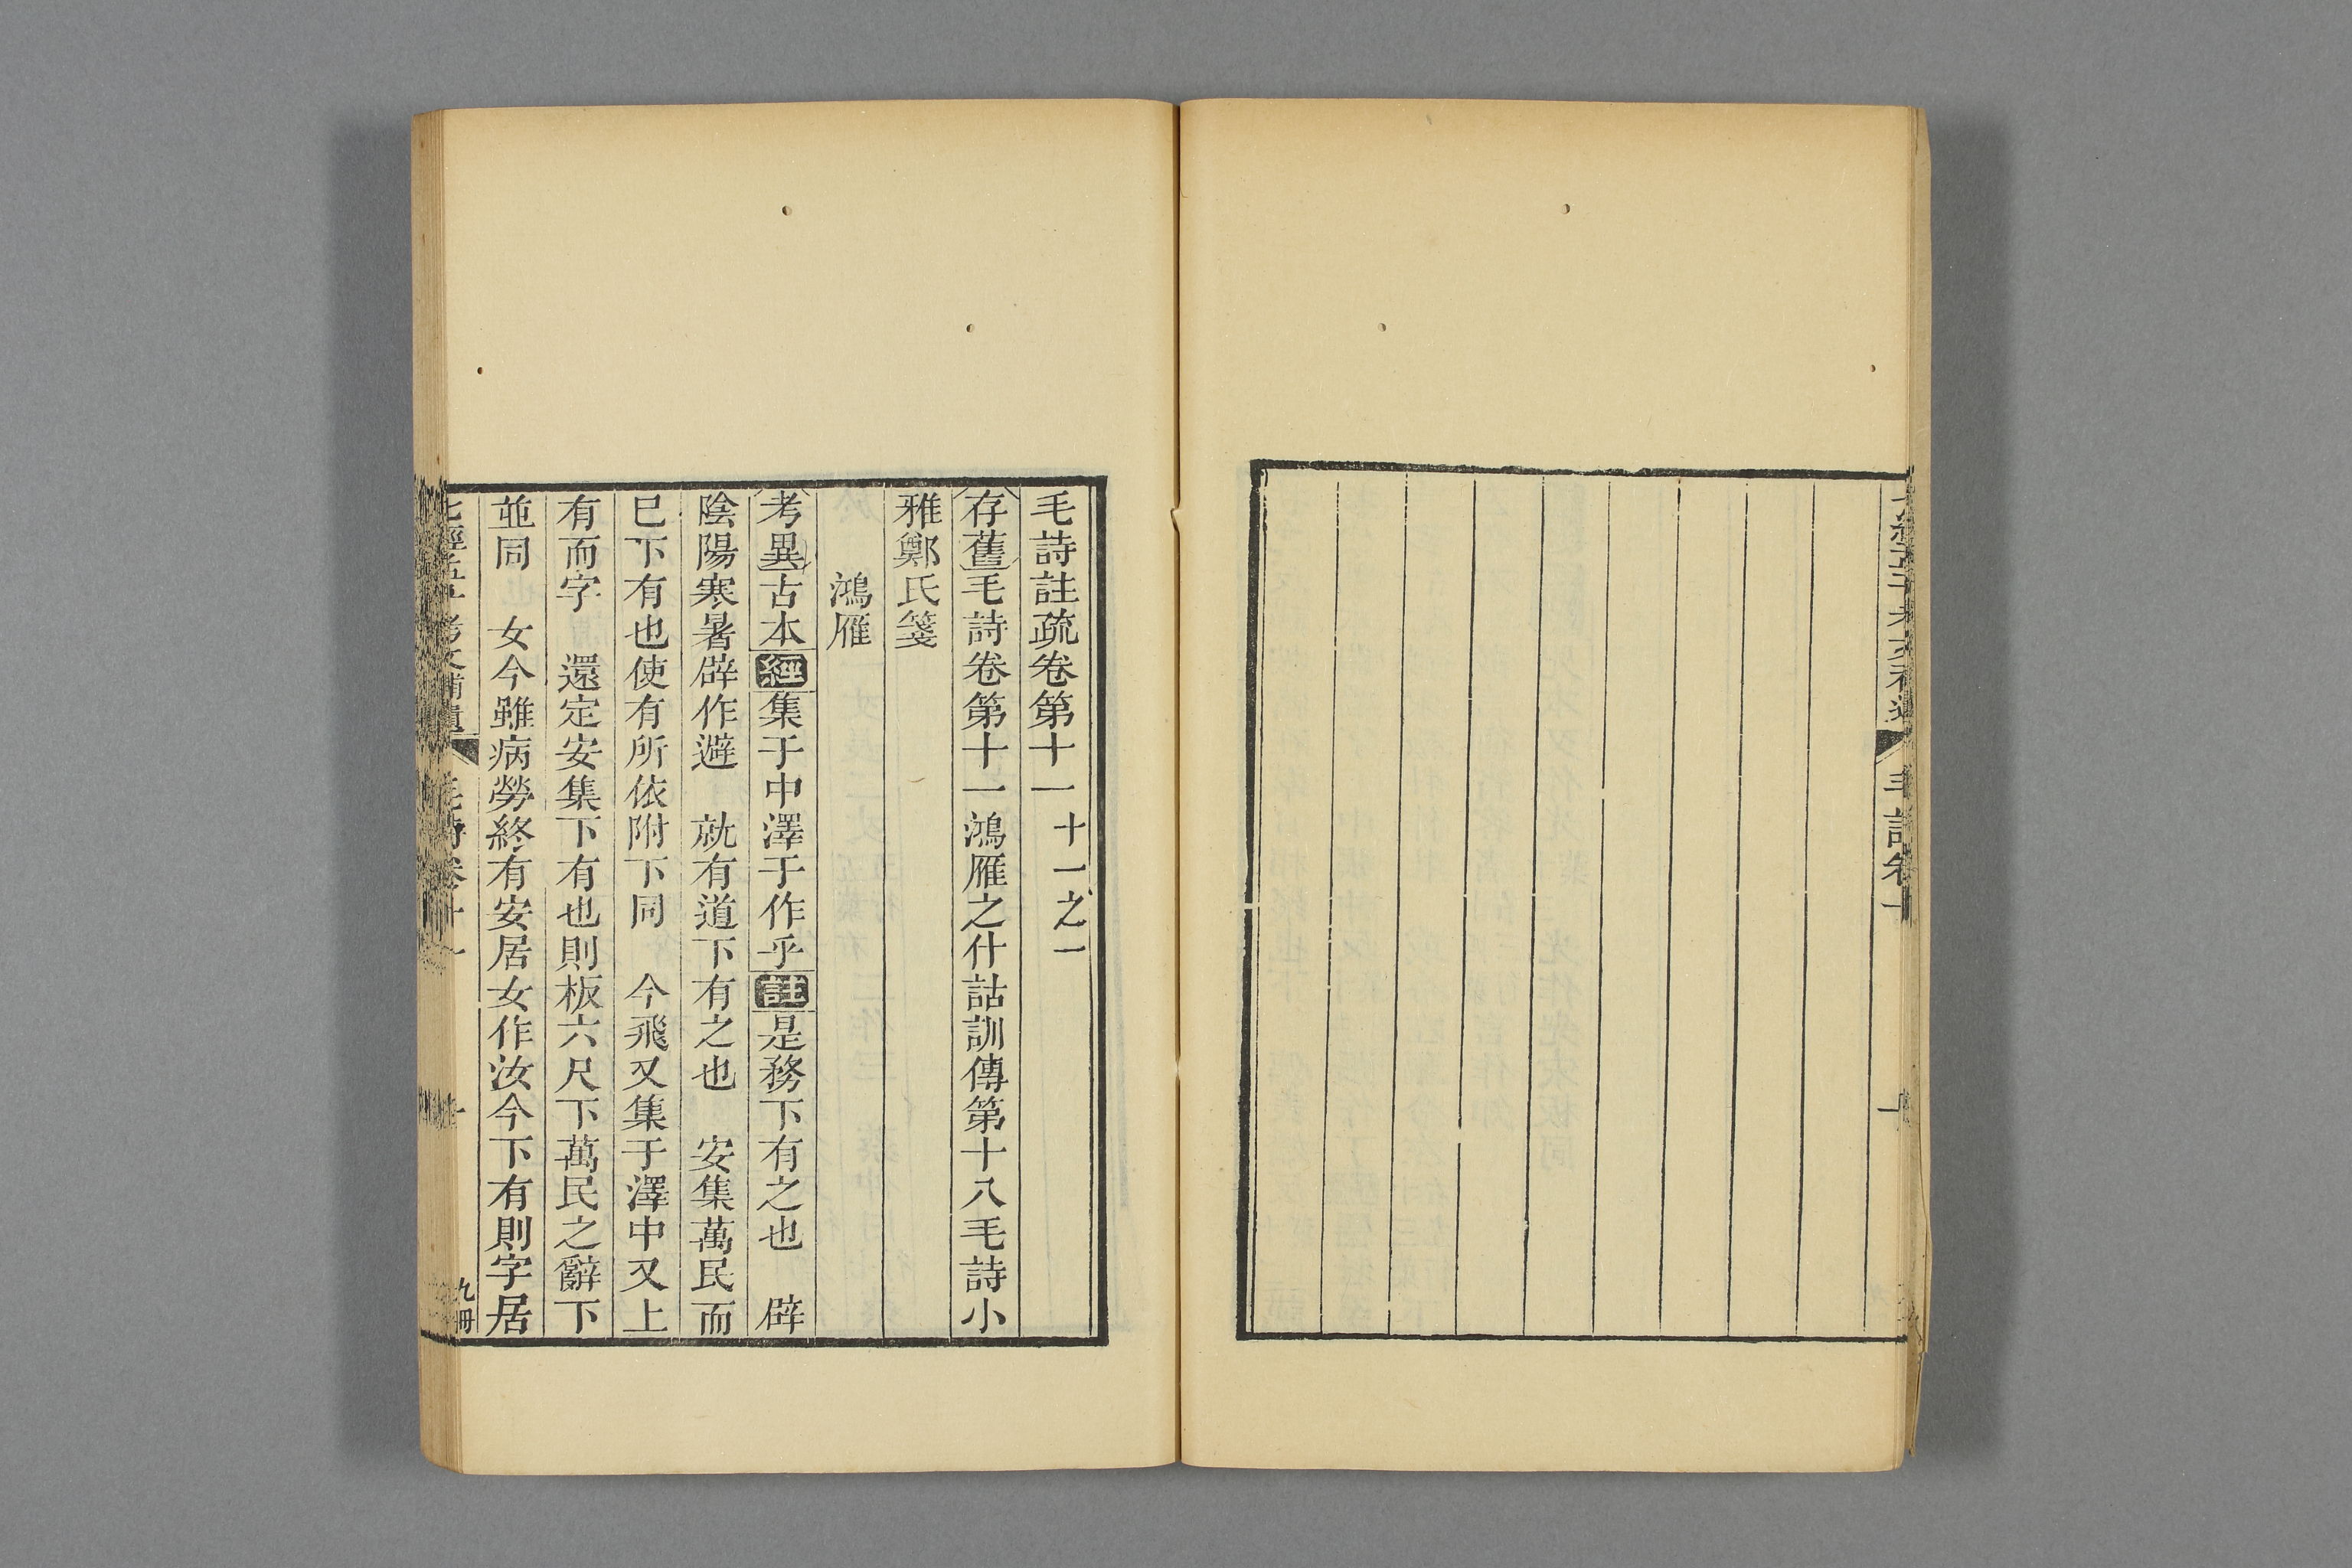 毛詩卷十
毛詩註疏卷第十一 十一之一
存舊毛詩卷第十一鴻雁之什詁訓傳第十八毛詩小
雅鄭氏箋
鴻雁
考異古本經集于中澤于作乎註是務下有之也　辟
陰陽寒暑辟作避　就有道下有之也　安集萬民而
巳下有也使有所依附下同　今飛又集于澤中又上
有而字　還定安集下有也則板六尺下萬民之辭下
並同　女今雖病勞終有安居女作汝今下有則字居
七經孟子考文補遺 毛詩卷十一 一 九冊